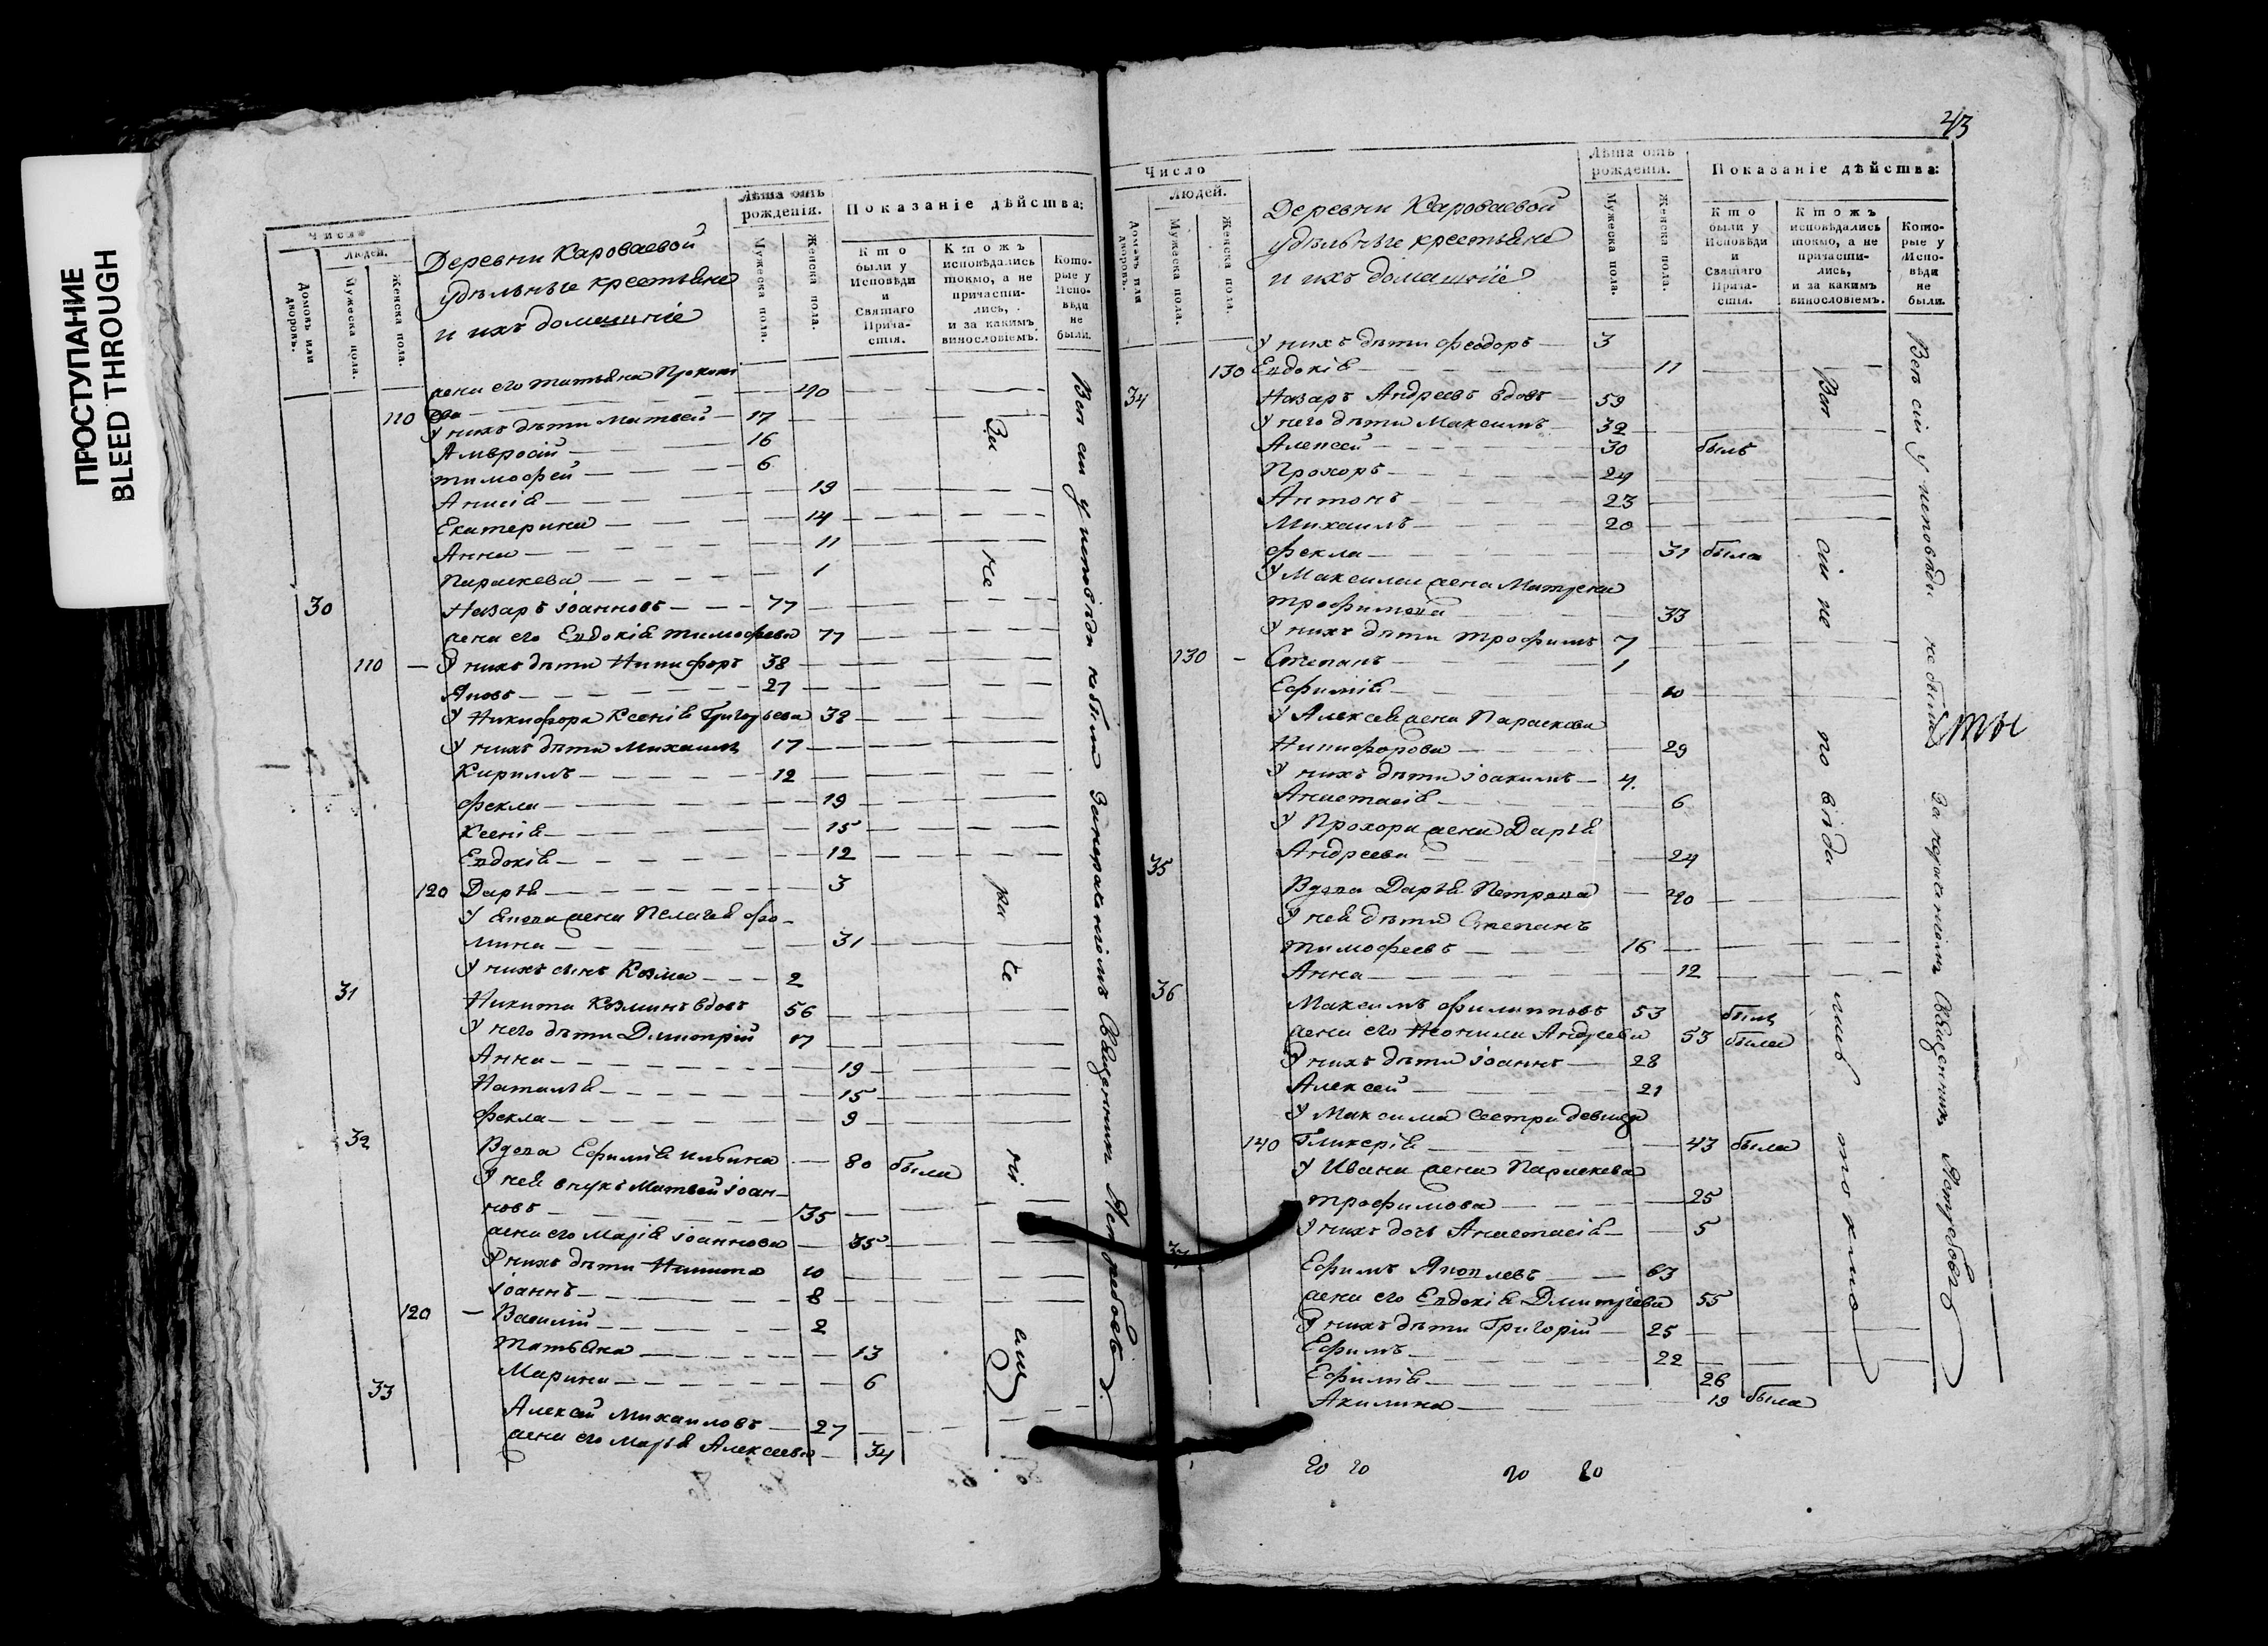 ПРОСТУПАНИЕ
BLEED THROUGH
Число
Людей.
Домовъ или дворовъ.
Мужеска пола.
Женска пола.
Деревни Короваевой
удѣльные крестьяне
и ихъ домашніе
Лѣта отъ рожденія.
Мужеска пола.
Женска пола.
Показаніе дѣйства:
Кто были у Исповѣди и Святаго Прича-стія.
Ктожъ исповѣдались токмо, а не причасти-лись, и за какимъ винословіемъ.
Кото-рые у Испо-вѣди не были.
жена его татьяна Прокоп
110 ева — 40
У нихъ дѣти Матвей — 17
Амвросій — 16
тимофей — 6
Анисія — 19
Екатерина — 14
Анна — 11
Параскева — 1
30 Назаръ іоанновъ — 77
жена его Евдокія тимофеева 77
110 — У нихъ дѣти Никифоръ 38
Яковъ — 27
У Никифора Ксенія Григорьева 38
У нихъ дѣти Михаилъ 17
Кириллъ — 12
фекла — 19
Ксенія — 15
Евдокія — 12
120 Дарья — 3
У Якова жена Пелагея фо-
мина — 31
У нихъ сынъ Козма — 2
31 Никита Козминъ вдовъ 56
У него дѣти Димитрій 17
Анна — 19
Наталья — 15
фекла — 9
32 Вдова Ефимія ильина — 80 была
У ней внукъ Матвей іоан-
новъ — 35
жена его Марія іоаннова — 35
У нихъ дѣти Никита 10
іоаннъ — 8
120 — Василій — 2
татьяна — 13
Марина — 6
33 Алексей Михаиловъ — 27
жена его Марья Алексеева — 34
За не ра че ні емъ
Всѣ сіи у исповѣди не были за нераченіемъ Священникъ Ястребовъ
43
Число
Людей.
Домовъ или дворовъ.
Мужеска пола.
Женска пола.
Деревни Короваевой
удѣльные крестьяне
и ихъ домашніе
Лѣта отъ рожденія.
Мужеска пола.
Женска пола.
Показаніе дѣйства:
Кто были у Исповѣди и Святаго Прича-стія.
Ктожъ исповѣдались токмо, а не причасти-лись, и за какимъ винословіемъ.
Кото-рые у Испо-вѣди не были.
У нихъ дѣти феодоръ — 3
130 Евдокія — 11
34 Назаръ Андреевъ вдовъ — 59
У него дѣти Максимъ — 32
Алексей — 30 былъ
Прохоръ — 24
Антонъ — 23
Михаилъ — 20
фекла — 31 была
У Максима жена Матрена
трофимова — 33
У нихъ дѣти трофимъ 7
130 — Степанъ — 1
Ефимія — 10
У Алексея жена Параскева
Никифорова — 29
У нихъ дѣти іоакимъ — 4
Анастасія — 6
У Прохора жена Дарья
Андреева — 24
35 Вдова Дарья Петрова — 40
У ней дѣти Степанъ
тимофеевъ — 16
Анна — 12
36 Максимъ филипповъ 53 былъ
жена его Неонила Андреева 53 была
У нихъ дѣти іоаннъ — 28
Алексей — 21
У Максима сестра девица
140 Гликерія — 43 была
У Ивана жена Параскева
трофимова — 25
У нихъ дочь Анастасія — 5
37 Ефимъ Яковлевъ — 63
жена его Евдокія Димитріева 55
У нихъ дѣти Григорій — 25
Ефимъ — 22
Ефимія — 26
Акилина — 19 была
Всѣ сіи не
Всѣ сіи у исповѣди не были за нераченіемъ Священникъ Ястребовъ
20 20 20 20